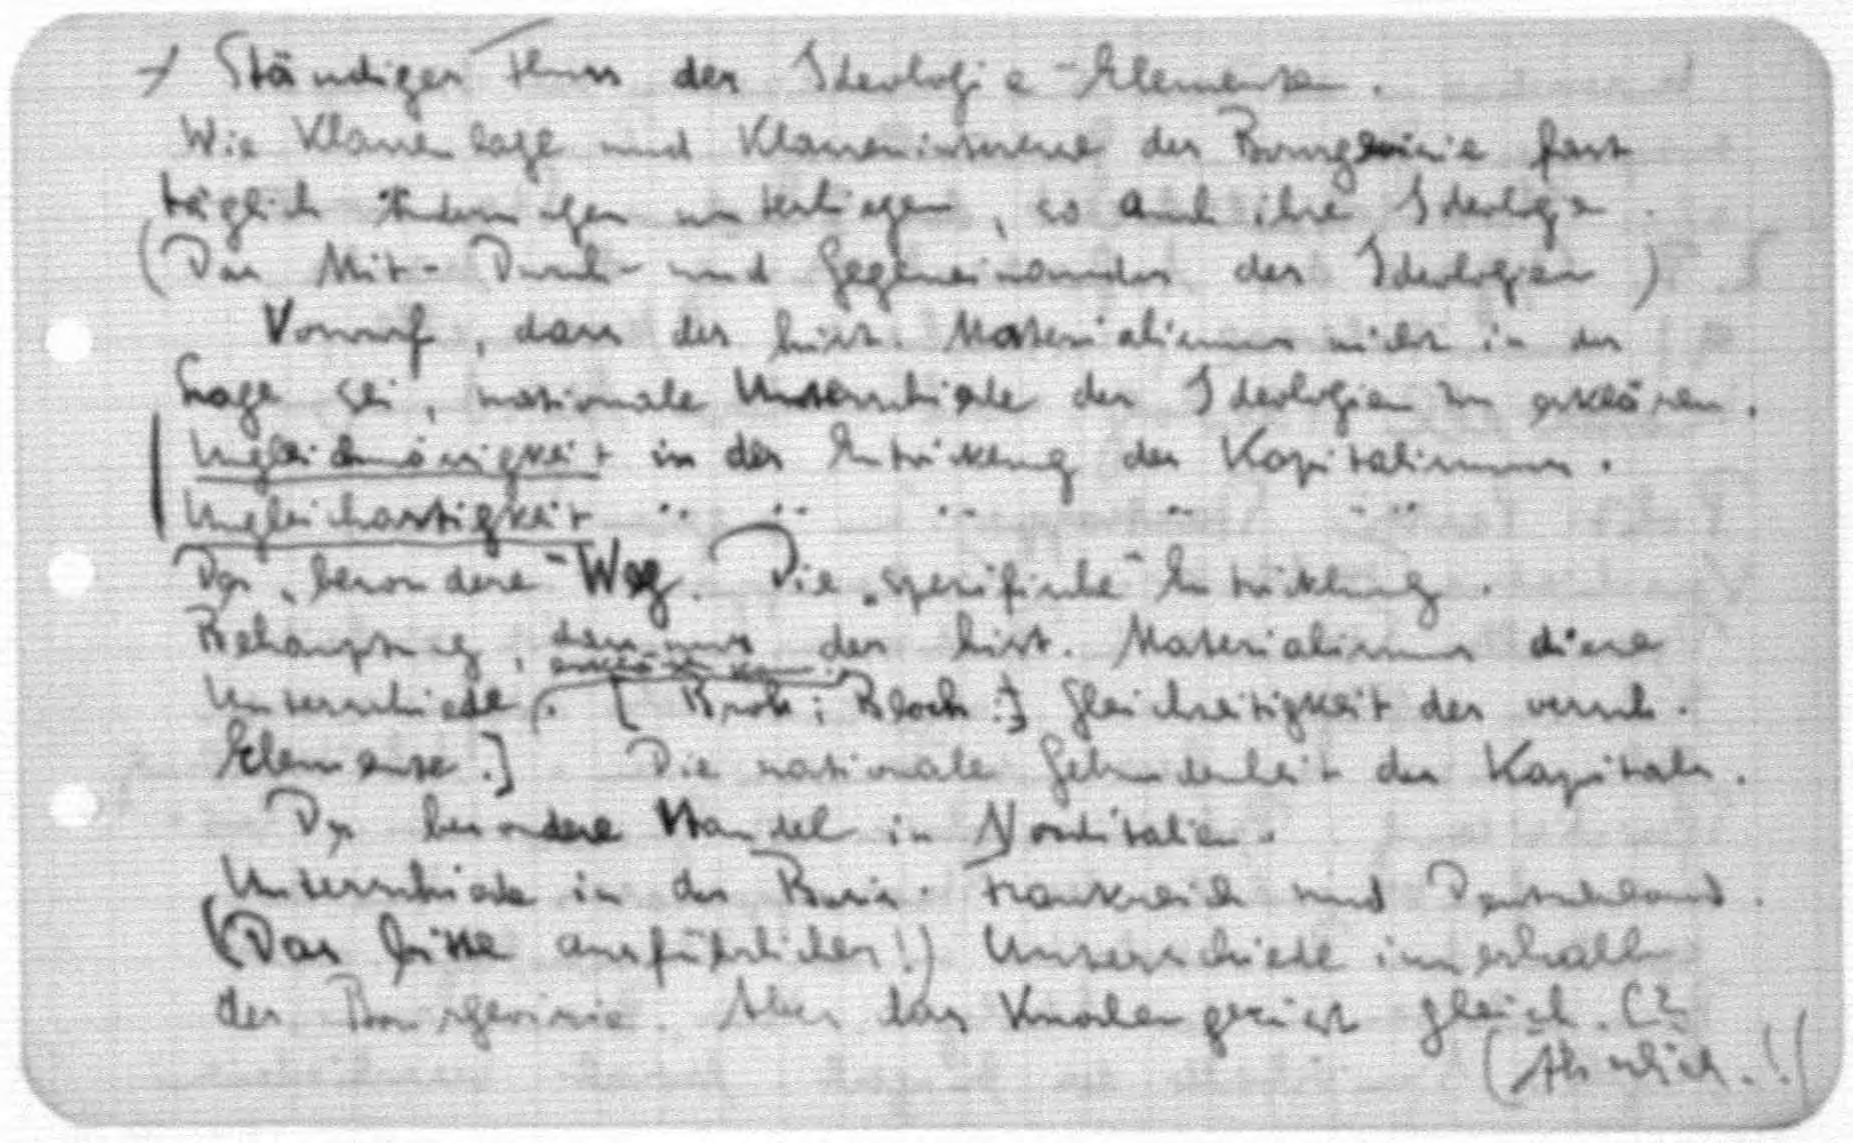 + Ständiger Fluss der Ideologie-Elemente.
Wie Klassenlage und Klasseninteresse der Bourgeoisie fast
täglich Änderungen unterliegen, so auch ihre Ideologie.
(Das Mit- Durch- und Gegeneinander der Ideologien)
Vorwurf, dass der hist. Materialismus nicht in der
Lage sei, nationale Unterschiede der Ideologien zu erklären.
Ungleichmässigkeit in der Entwicklung des Kapitalismus.
Ungleichartigkeit " " " " "
Der „besondere" Weg. Die „spezifische" Entwicklung.
Behauptung, dass nur der hist. Materialismus diese
erklären kann
Unterschiede. [ ; Bloch:] Gleichzeitigkeit der versch.
Elemente.] Die nationale Gebundenheit des Kapitals.
Der besondere Wandel in Norditalien.
Unterschiede in der Basis. Frankreich und Deutschland.
(Das bitte ausführlicher!) Unterschiede innerhalb
der Bourgeoisie. Aber das Knochengerüst gleich. (?
(Ähnlich.!(